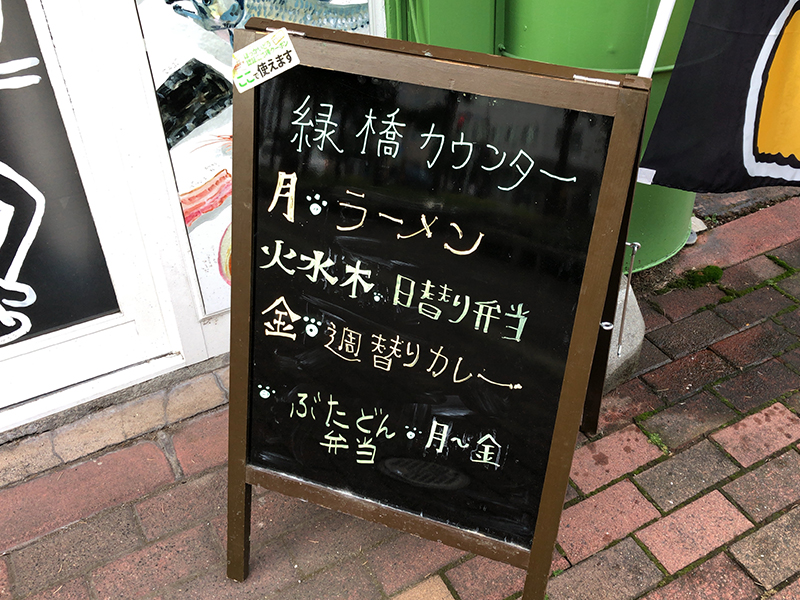 ここで使えます
緑橋カウンター
月 ラーメン
火水木 日替り弁当
金 週替りカレー
ぶたどん 月～金
弁当